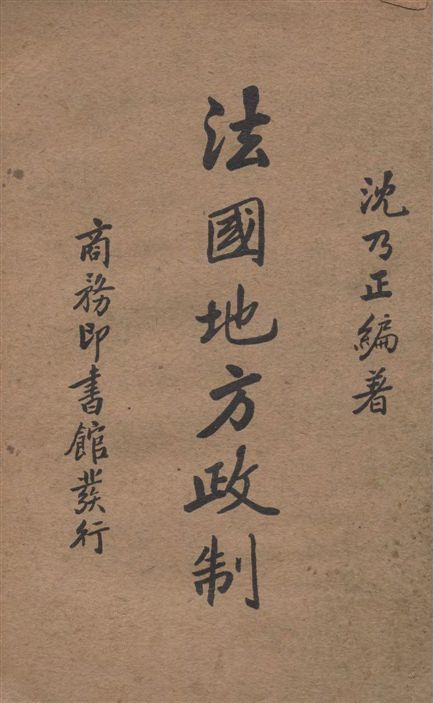 沈乃正編著
法國地方政制
商務印書館發行